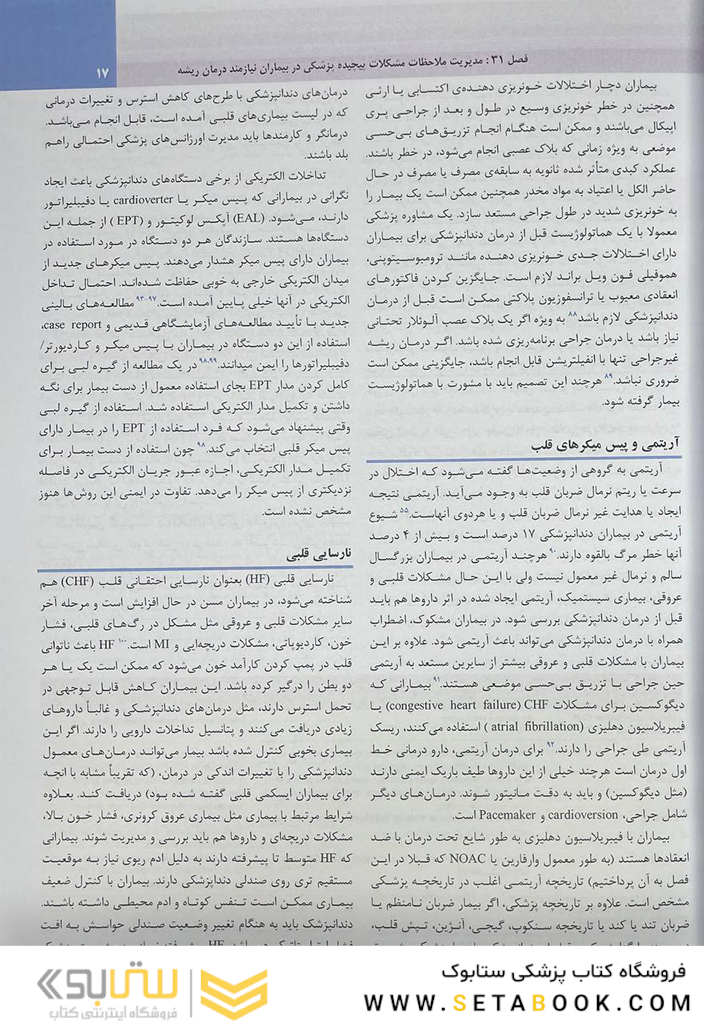 فصل ۳۱: مدیریت ملاحظات مشکلات پیچیده پزشکی در بیماران نیازمند درمان ریشه
۱۷
بیماران دچار اختلالات خونریزی دهنده‌ی اکتسابی یا ارثی
همچنین در خطر خونریزی وسیع در طول و بعد از جراحی پری
اپیکال می‌باشند و ممکن است هنگام انجام تزریق‌های بی‌حسی
موضعی به ویژه زمانی که بلاک عصبی انجام می‌شود، در خطر باشند.
عملکرد کبدی متأثر شده ثانویه به سابقه‌ی مصرف یا مصرف در حال
حاضر الکل یا اعتیاد به مواد مخدر همچنین ممکن است یک بیمار را
به خونریزی شدید در طول جراحی مستعد سازد. یک مشاوره پزشکی
معمولا با یک هماتولوژیست قبل از درمان دندانپزشکی برای بیماران
دارای اختلالات جدی خونریزی دهنده مانند ترومبوسیتوپنی،
هموفیلی فون ویل براند لازم است. جایگزین کردن فاکتورهای
انعقادی معیوب یا ترانسفوزیون پلاکتی ممکن است قبل از درمان
دندانپزشکی لازم باشد۸۸ به ویژه اگر یک بلاک عصب آلوئلار تحتانی
نیاز باشد یا درمان جراحی برنامه‌ریزی شده باشد. اگر درمان ریشه
غیرجراحی تنها با انفیلتریشن قابل انجام باشد، جایگزینی ممکن است
ضروری نباشد.۸۹ هرچند این تصمیم باید با مشورت با هماتولوژیست
بیمار گرفته شود.
آریتمی و پیس میکرهای قلب
آریتمی به گروهی از وضعیت‌ها گفته می‌شود که اختلال در
سرعت یا ریتم نرمال ضربان قلب به وجود می‌آید. آریتمی نتیجه
ایجاد یا هدایت غیر نرمال ضربان قلب و یا هردوی آنهاست.۵۵ شیوع
آریتمی در بیماران دندانپزشکی ۱۷ درصد است و بیش از ۴ درصد
آنها خطر مرگ بالقوه دارند.۹۰ هرچند آریتمی در بیماران بزرگسال
سالم و نرمال غیر معمول نیست ولی با این حال مشکلات قلبی و
عروقی، بیماری سیستمیک، آریتمی ایجاد شده در اثر داروها هم باید
قبل از درمان دندانپزشکی بررسی شود. در بیماران مشکوک، اضطراب
همراه با درمان دندانپزشکی می‌تواند باعث آریتمی شود. علاوه بر این
بیماران با مشکلات قلبی و عروقی بیشتر از سایرین مستعد به آریتمی
حین جراحی با تزریق بی‌حسی موضعی هستند.۹۱ بیمارانی که
دیگوکسین برای مشکلات CHF (congestive heart failure) یا
فیبریلاسیون دهلیزی (atrial fibrillation) استفاده می‌کنند، ریسک
آریتمی طی جراحی را دارند.۹۲ برای درمان آریتمی، دارو درمانی خط
اول درمان است هرچند خیلی از این داروها طیف باریک ایمنی دارند
(مثل دیگوکسین) و باید به دقت مانیتور شوند. درمان‌های دیگر
شامل جراحی، cardioversion و Pacemaker است.
بیماران با فیبریلاسیون دهلیزی به طور شایع تحت درمان با ضد
انعقادها هستند (به طور معمول وارفارین یا NOAC که قبلا در این
فصل به آن پرداختیم) تاریخچه آریتمی اغلب در تاریخچه پزشکی
مشخص است. علاوه بر تاریخچه پزشکی، اگر بیمار ضربان نامنظم یا
ضربان تند یا کند یا تاریخچه سنکوپ، گیجی، آنژین، تپش قلب،
درمان‌های دندانپزشکی با طرح‌های کاهش استرس و تغییرات درمانی
که در لیست بیماری‌های قلبی آمده است، قابل انجام می‌باشد.
درمانگر و کارمندها باید مدیرت اورژانس‌های پزشکی احتمالی راهم
بلد باشند.
تداخلات الکتریکی از برخی دستگاه‌های دندانپزشکی باعث ایجاد
نگرانی در بیمارانی که پیس میکر یا cardioverter یا دفیبلیراتور
دارند، می‌شود. (EAL) آپکس لوکیتور و (EPT) از جمله این
دستگاه‌ها هستند. سازندگان هر دو دستگاه در مورد استفاده در
بیماران دارای پیس میکر هشدار می‌دهند. پیس میکرهای جدید از
میدان الکتریکی خارجی به خوبی حفاظت شده‌اند. احتمال تداخل
الکتریکی در آنها خیلی پایین آمده است.۹۳-۹۷ مطالعه‌های بالینی
جدید با تأیید مطالعه‌های آزمایشگاهی قدیمی و case report،
استفاده از این دو دستگاه در بیماران با پیس میکر و کاردیورتر/
دفیبلیراتورها را ایمن میدانند.۹۸،۹۹ در یک مطالعه از گیره لبی برای
کامل کردن مدار EPT بجای استفاده معمول از دست بیمار برای نگه
داشتن و تکمیل مدار الکتریکی استفاده شد. استفاده از گیره لبی
وقتی پیشنهاد می‌شود که فرد استفاده از EPT را در بیمار دارای
پیس میکر قلبی انتخاب می‌کند.۹۸ چون استفاده از دست بیمار برای
تکمیل مدار الکتریکی، اجازه عبور جریان الکتریکی در فاصله
نزدیکتری از پیس میکر را می‌دهد. تفاوت در ایمنی این روش‌ها هنوز
مشخص نشده است.
نارسایی قلبی
نارسایی قلبی (HF) بعنوان نارسایی احتقانی قلب (CHF) هم
شناخته می‌شود، در بیماران مسن در حال افزایش است و مرحله آخر
سایر مشکلات قلبی و عروقی مثل مشکل در رگ‌های قلبی، فشار
خون، کاردیوپاتی، مشکلات دریچه‌ایی و MI است.۱۰۰ HF باعث ناتوانی
قلب در پمپ کردن کارآمد خون می‌شود که ممکن است یک یا هر
دو بطن را درگیر کرده باشد. این بیماران کاهش قابل توجهی در
تحمل استرس دارند، مثل درمان‌های دندانپزشکی و غالباً داروهای
زیادی دریافت می‌کنند و پتانسیل تداخلات دارویی را دارند. اگر این
بیماری بخوبی کنترل شده باشد بیمار می‌تواند درمان‌های معمول
دندانپزشکی را با تغییرات اندکی در درمان، (که تقریباً مشابه با انچه
برای بیماران ایسکمی قلبی گفته شده بود) دریافت کند. بعلاوه
شرایط مرتبط با بیماری مثل بیماری عروق کرونری، فشار خون بالا،
مشکلات دریچه‌ای و داروها هم باید بررسی و مدیریت شوند. بیمارانی
که HF متوسط تا پیشرفته دارند به دلیل ادم ریوی نیاز به موقعیت
مستقیم تری روی صندلی دنداپزشکی دارند. بیماران با کنترل ضعیف
بیماری ممکن است تنفس کوتاه و ادم محیطی داشته باشند.
دندانپزشک باید به هنگام تغییر وضعیت صندلی حواسش به افت
فروشگاه کتاب پزشکی ستابوک
WWW.SETABOOK.COM
ستابوک
فروشگاه اینترنتی کتاب